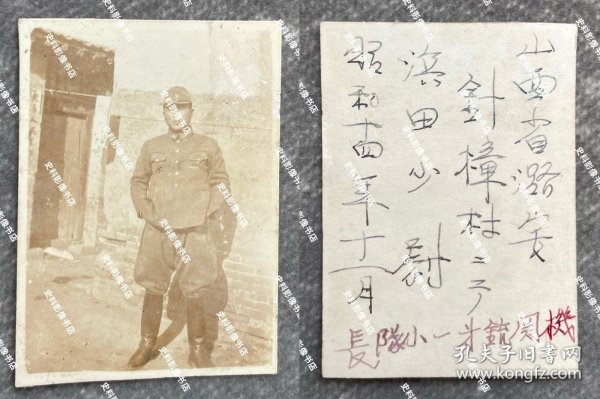 山西省潞安
針樟村ニテ
浜田少尉
昭和十四年十一月
機関銃第一小隊長
史料影像书店
孔夫子旧书网
www.kongfz.com